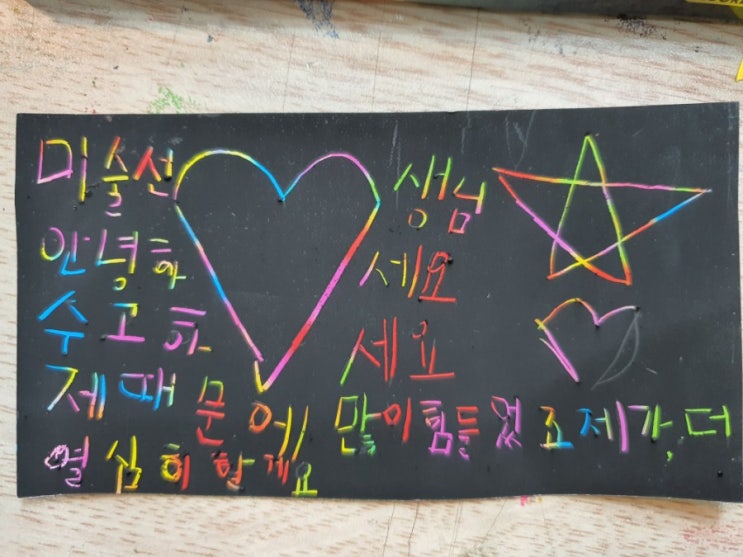 미술선생님
안녕하세요
수고하세요
제때문에 많이힘들었죠제가,더
열심희할게요